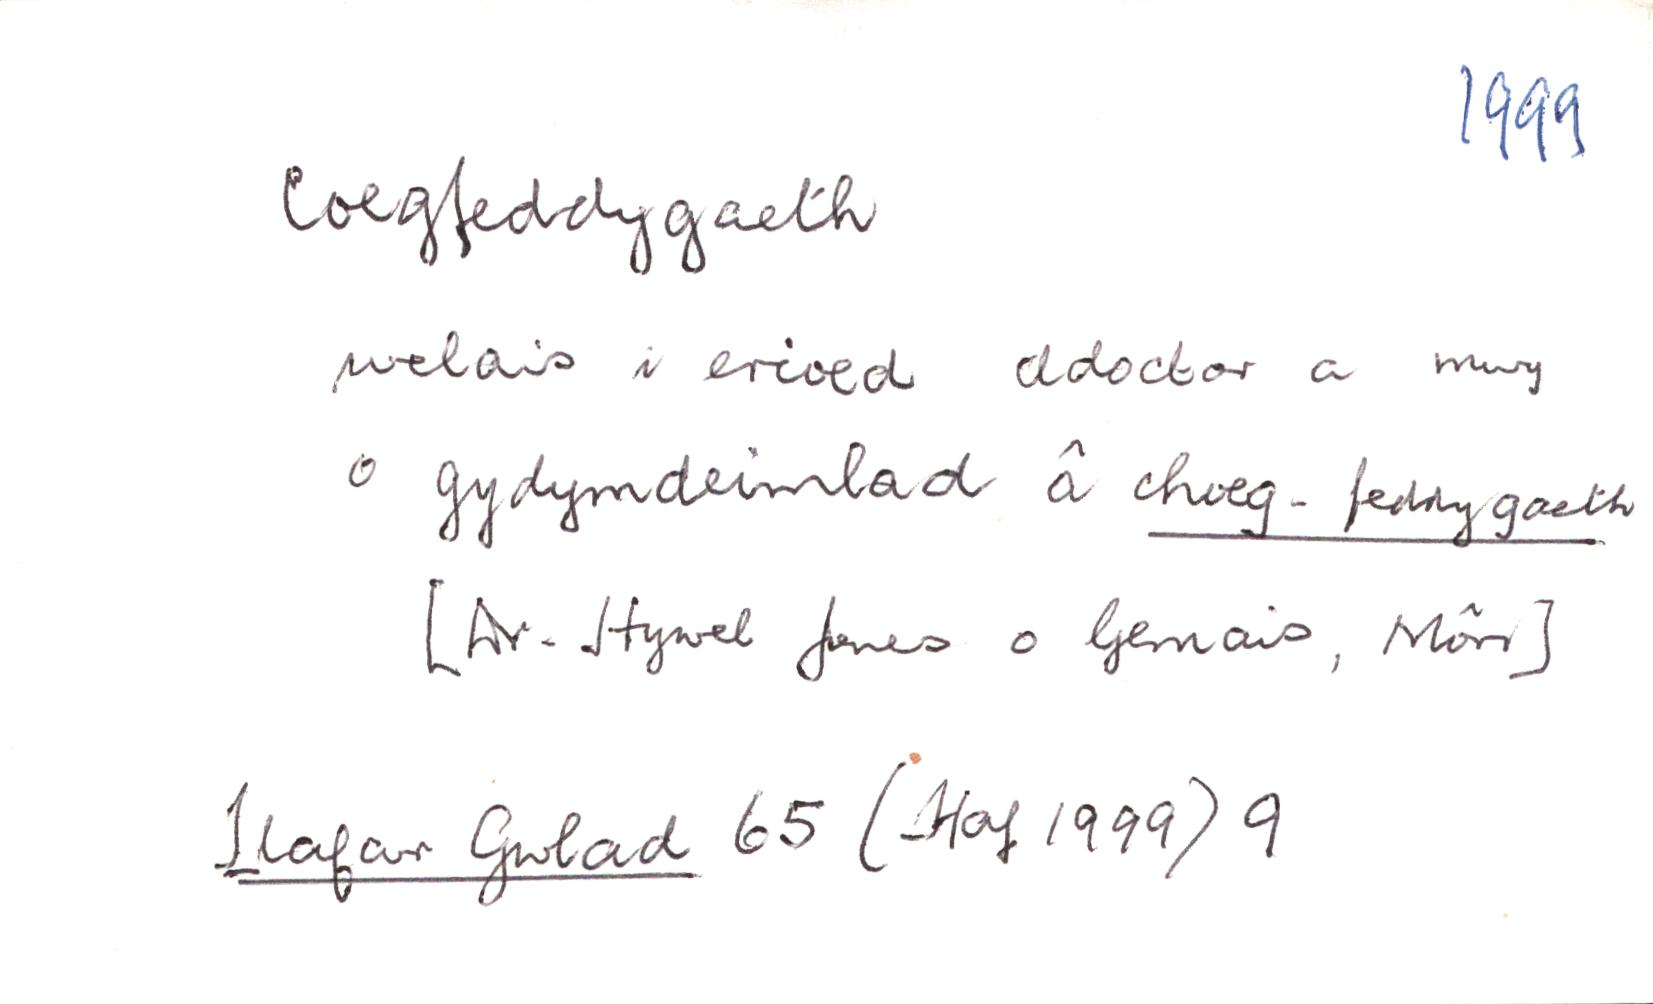 1999
Coegfeddygaeth
welais i erioed ddoctor a mwy
o gydymdeimlad â choeg-feddygaeth
[Dr. Hywel Jones o Gemais, Môn]
Llafar Gwlad 65 (Haf 1999) 9